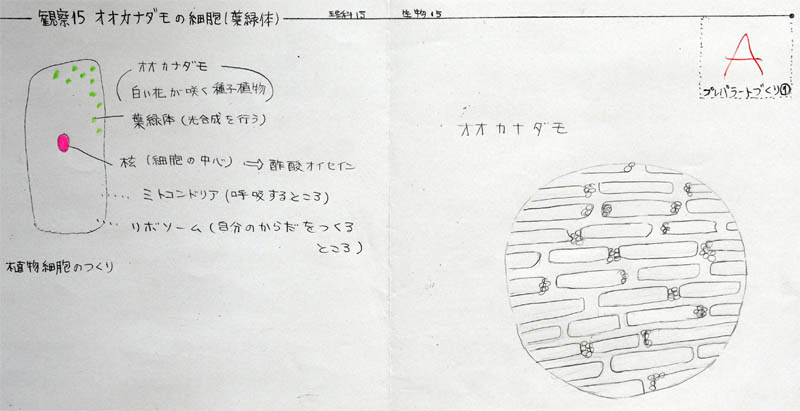 観察15 オオカナダモの細胞(葉緑体)
理科15 生物15
A
プレパラートづくり①
オオカナダモ
白い花が咲く種子植物
葉緑体(光合成を行う)
核(細胞の中心)⇨酢酸オイセイン
ミトコンドリア(呼吸するところ)
リボソーム(自分のからだをつくる
ところ)
植物細胞のつくり
オオカナダモ